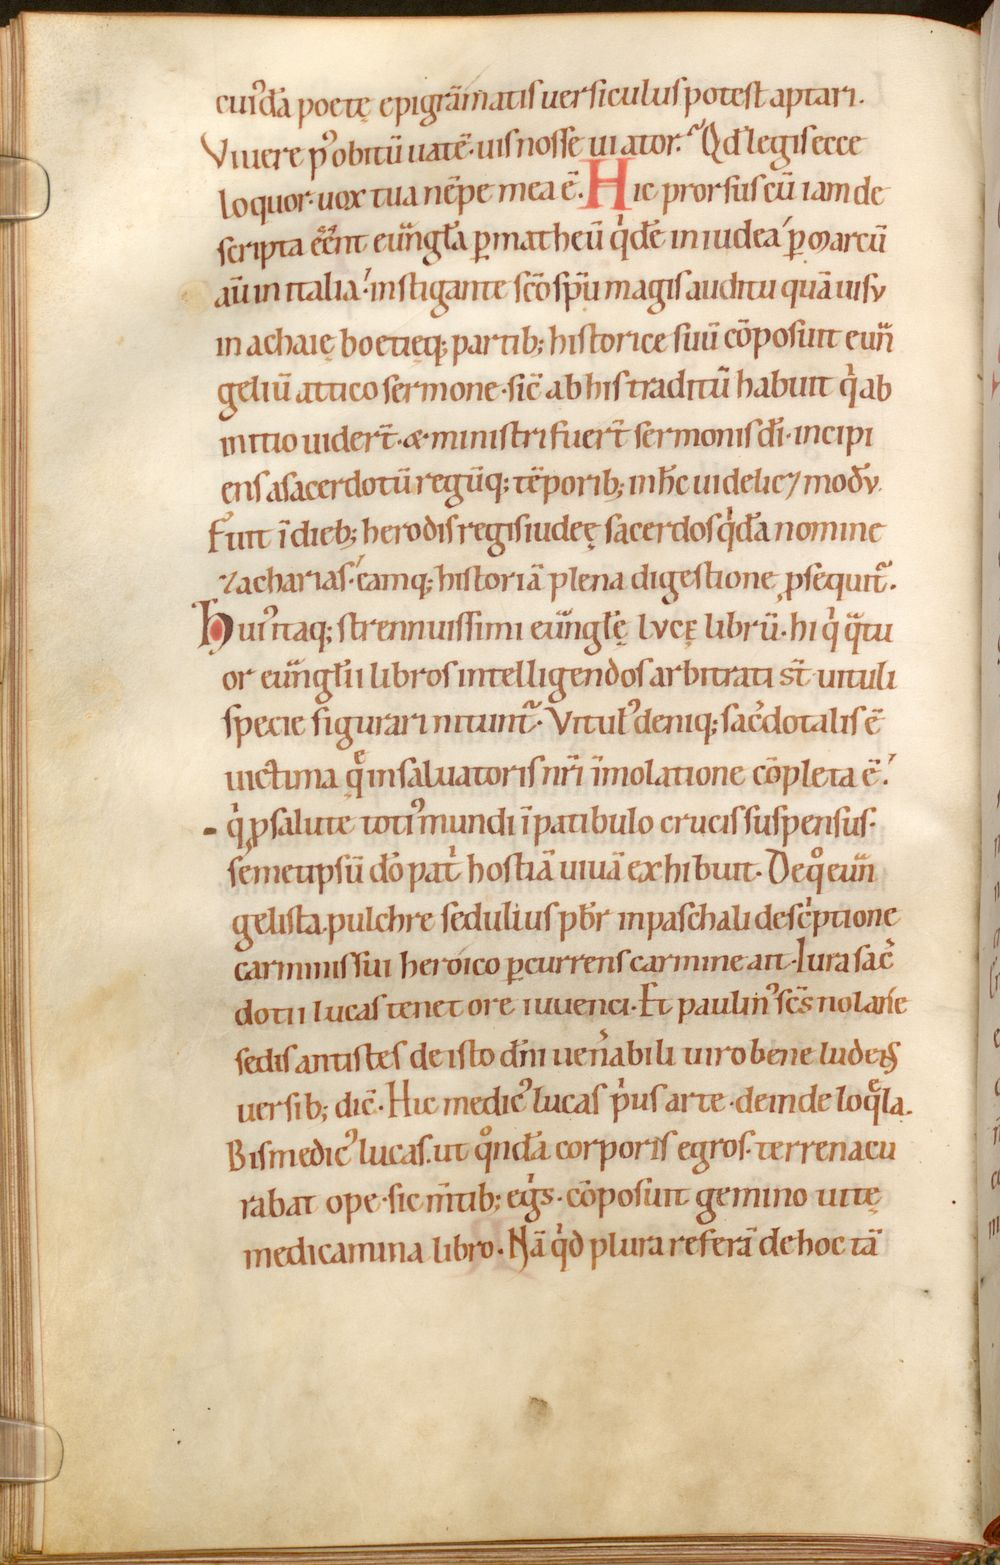 cuı᷒dā poetę epigrāmatis uersiculus potest aptari.
Viuere p᷒ obitū uatē· uis nosse uiator.᷒ Qđ legis ecce
loquor· uox tua nēpe mea ē. Hic prorsus cū iam de
scripta eēnt eūngła ꝑ matheū qͥdē in iudea ꝑ marcū
aū in italia· instigante scō spū magis auditu quā uisu
in achaię boetięq; partib; historice suū cōposuit eun̄
geliū attico sermone· sic̄ ab his traditū habuit qͥ ab
initio uidert̄· & ministri fuert̄ sermonis dī· incipi
ens a sacerdotū regūq; tēporib; in hc̄ uidelic⁊ modū.
Fuit ī dieb; herodis regis iudeę sacerdos qͥdā nomine
zacharias· eamq; historiā plena digestione ꝓsequit᷒.
Hui᷒ itaq; strennuissimi eun̄głę lucę librū· hi qͥ qͣtu
or eun̄głii libros intelligendos arbitrati st̄ uituli
specie figurari nitunt᷒. Vitul᷒ deniq; sac̄dotalis ē
uictima qͤ in saluatoris nr̄i īmolatione cōpleta ē.
qͥ ꝓ salute toti᷒ mundi ī patibulo crucis suspensus·
semetipsū dō patͥ hostiā uiuā exhibuit. De qͦ eun̄
gelista pulchre sedulius pbr̄ in paschali descͥptione
carminis sui heroico ꝑcurrens carmine ait· Iura sac̄
dotii lucas tenet ore iuuenci· Et paulin᷒ scs̄ nolane
sedis antistes de isto dn̄i uen̄abili uiro bene ludens
uersib; dic̄· Hic medic᷒ lucas pͥus arte· deinde loqͤla.
Bis medic᷒ lucas. ut qͦndā corporis egros· terrena cu
rabat ope· sic m̄tib; egͥs· cōposuit gemino uitę
medicamina libro· Nā qͥd plura referā de hoc tā